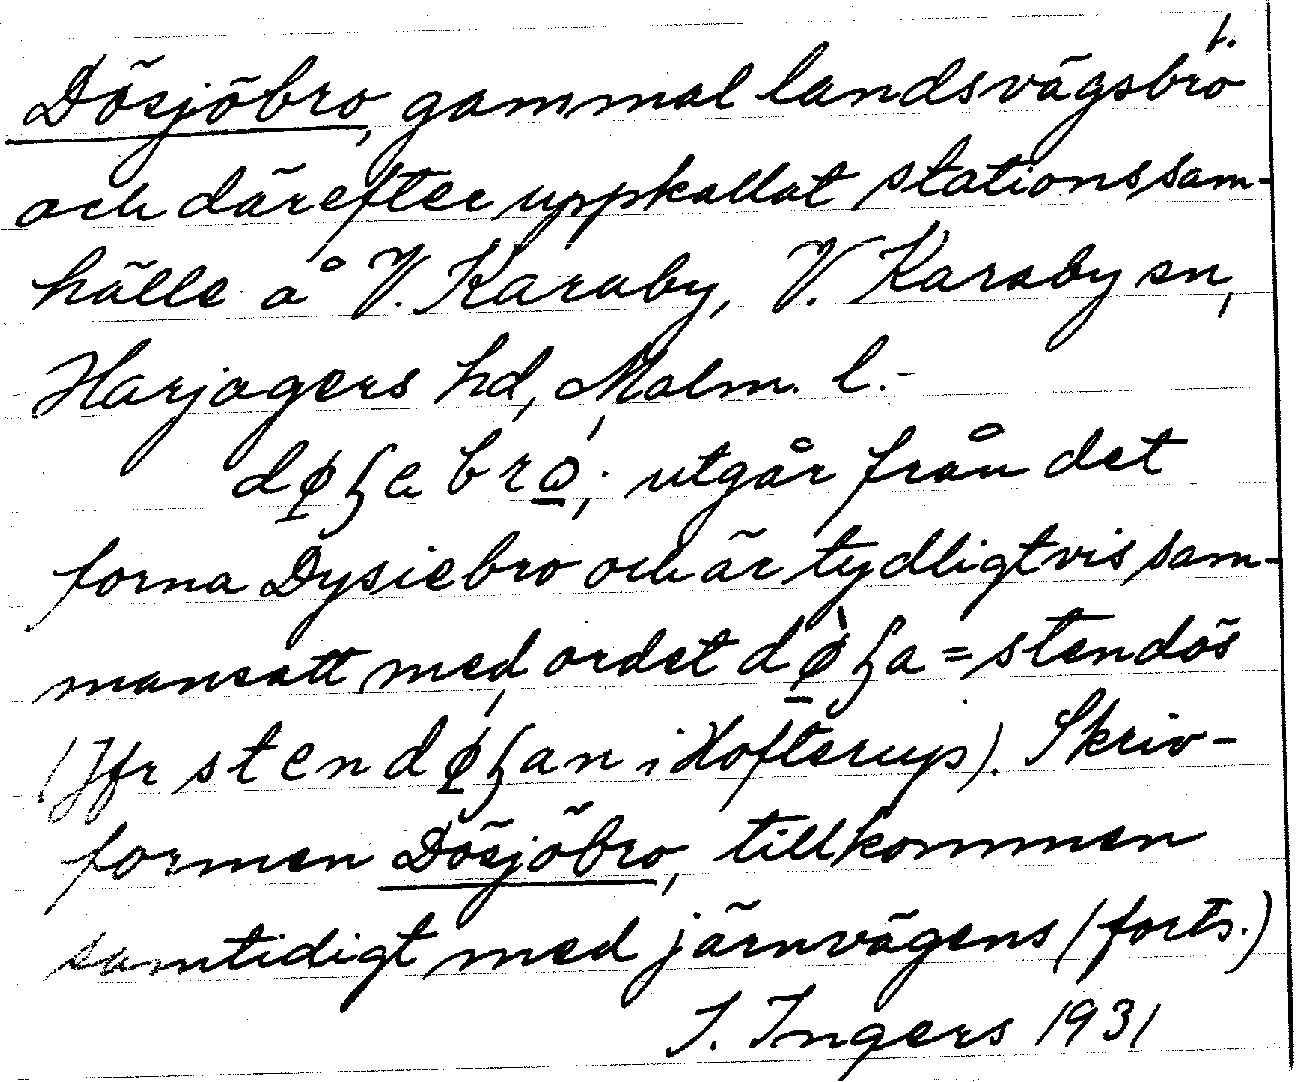 1.
Dösjöbro, gammal landsvägsbro
och därefter uppkallat stationssam-
hälle å V. Karaby, V. Karaby sn,
Harjagers hd, Malm. l.-
utgår från det
forna Dysiebro och är tydligtvis sam-
mansatt med ordet = stendös
(Jfr i Hofterup). Skriv-
formen Dösjöbro, tillkommen
samtidigt med järnvägens (forts.)
I. Ingers 1931